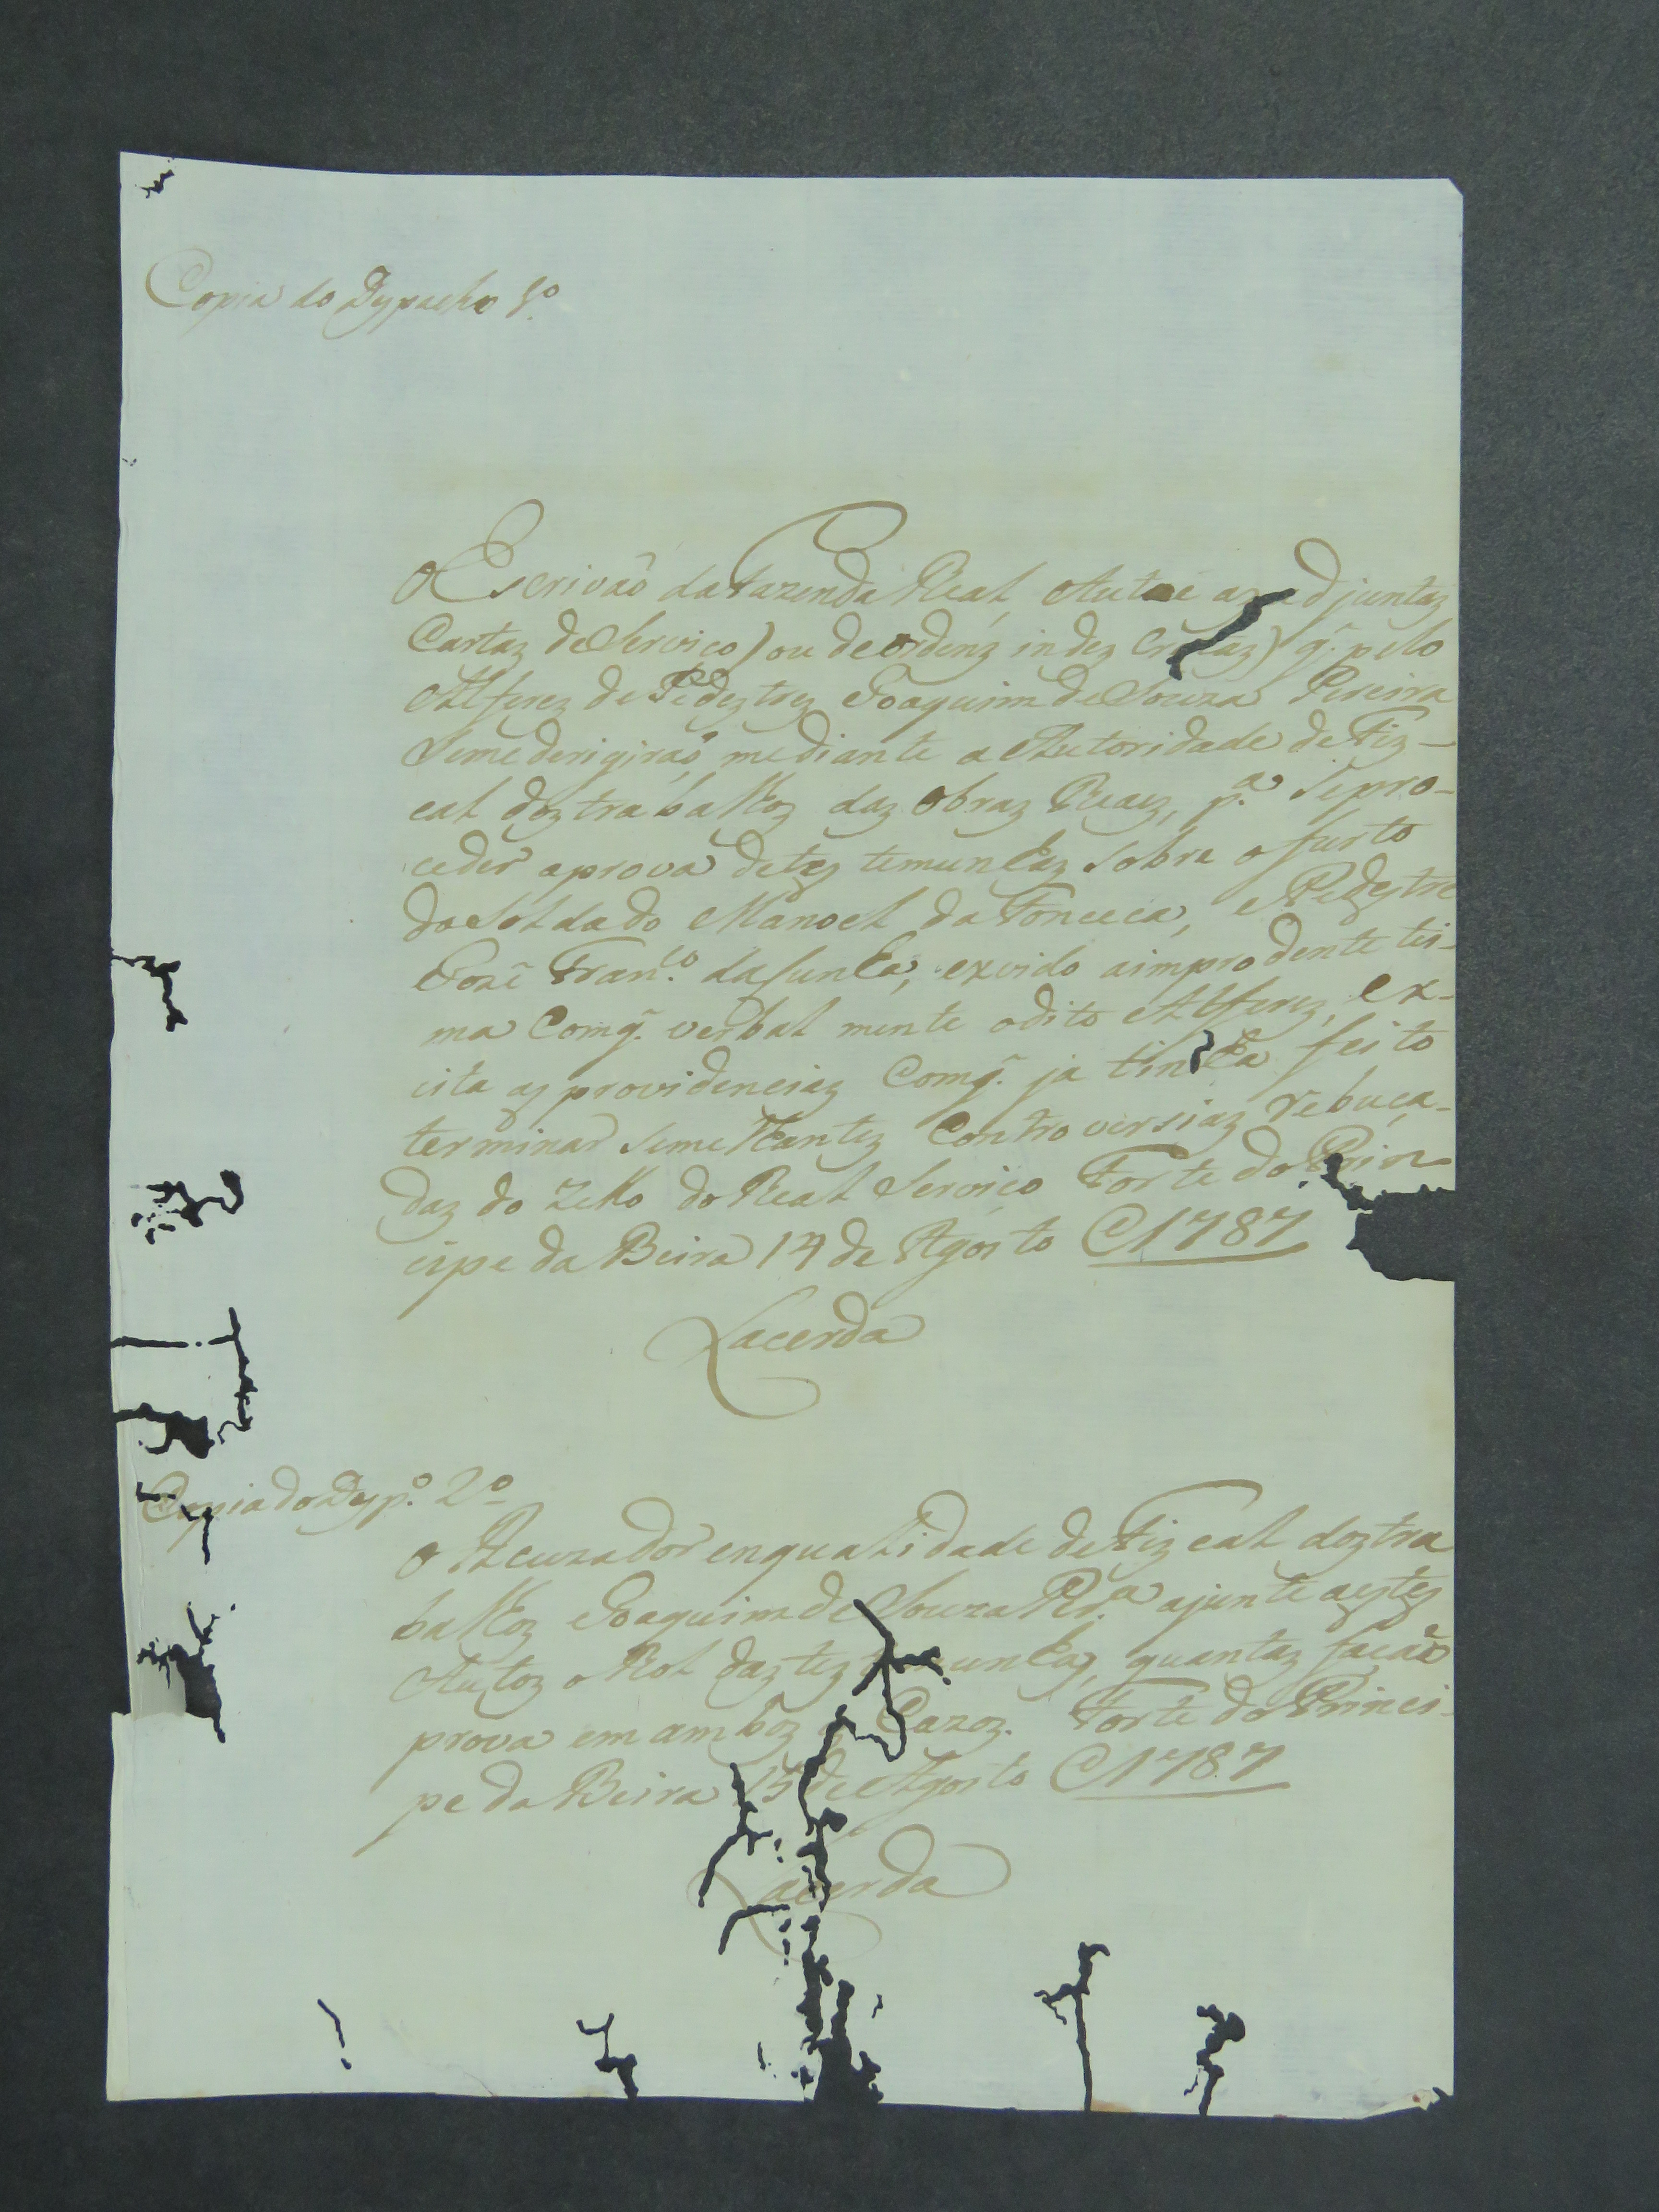 Copia do Dyspacho 1.º
O Escrivaõ da Fazenda Real, Autue as adjuntaz
Cartaz de Serviço) ou de ordenz indez Cretaz) q̃. pelo
Alferez de Pedeztrez Joaquim de Souza Pereira
Seme derigiraõ, mediante a Autoridade de Fiz-
cal doz trabalhoz daz Obraz Reaez, p.ª Sepro-
ceder aprova detes temunhaz Sobre o furto
do Soldado Manoel da Fonceca, e Pedestre
Jozé Fran.co da Cunha, exvido aimprodente tei-
ma Comq̃. verbal mente o dito Alferez, ex-
cita as providenciaz Comq̃. ja tinha feito
terminar Semelhantez Controversiaz rebuça-
daz do Zello do Real Serviço Forte do Prin
cipe da Beira 14 de Agosto @ 1787
Lacerda
Copia do Desp.º 2.º
O Acuzador enqualidade de Fizcal doz tra
balhoz Joaquim de Souza Pr.ª ajunte aestes
Autoz o Rol daz tez unhas, quantaz facaõ
prova em amboz Cazoz. Forte do Princi-
pe da Beira 15 de Agosto @ 1787
Lacerda